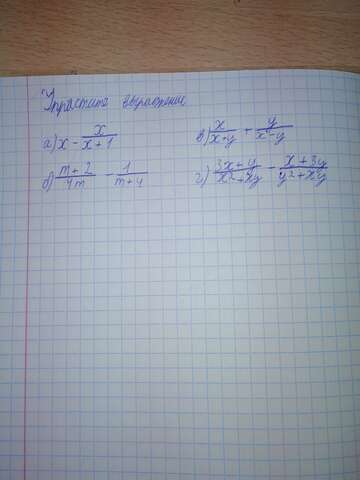 Упростите выражение
а) x - x/(x+1) в) x/(x+y) + y/(x-y)
б) (m+2)/4m - 1/(m+4) г) (3x+y)/(x²+xy) - (x+3y)/(y²+xy)